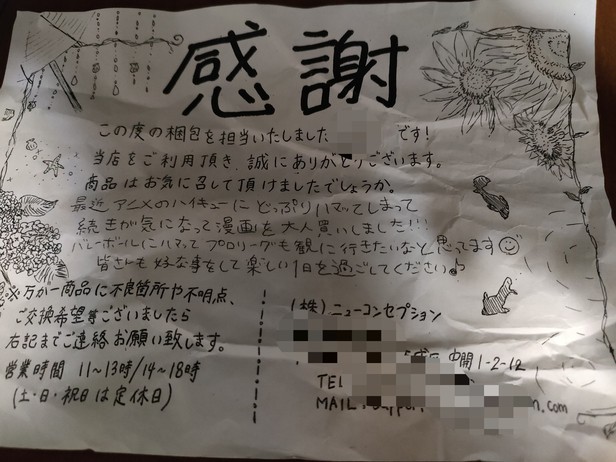 感謝
この度の梱包を担当いたしました です!
当店をご利用頂き、誠にありがとうございます。
商品はお気に召して頂けましたでしょうか。
最近アニメのハイキューにどっぷりハマってしまって
続きが気になって漫画を大人買いしました!!!
バレーボールにハマってプロリーグも観に行きたいなと思ってます
皆さんも好な事をして楽しい1日を過ごしてください♪
※万が一商品に不良箇所や不明点、
ご交換希望等ございましたら
右記までご連絡お願い致します。
営業時間 11~13時/14~18時
(土・日・祝日は定休日)
(株)ニューコンセプション
中開1-2-12
TEL
MAIL: .com